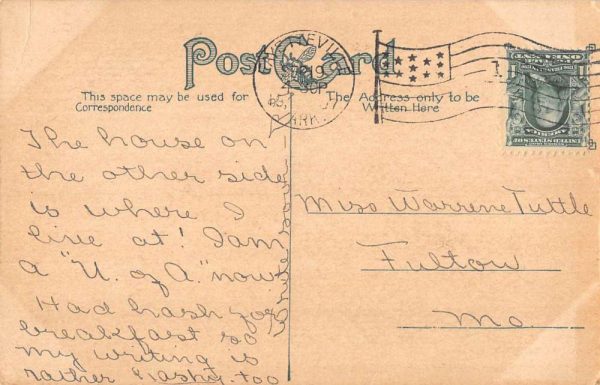 Post Card
This space may be used for
Correspondence
The Address only to be
Written Here
SEP 19
ARK.
1
The house on
the other side
is where I
live at! I am
a "U. of A." now
Had hash for
breakfast so
my writing is
rather hashy. too
Miss Warrene Tuttle
Fulton
Mo